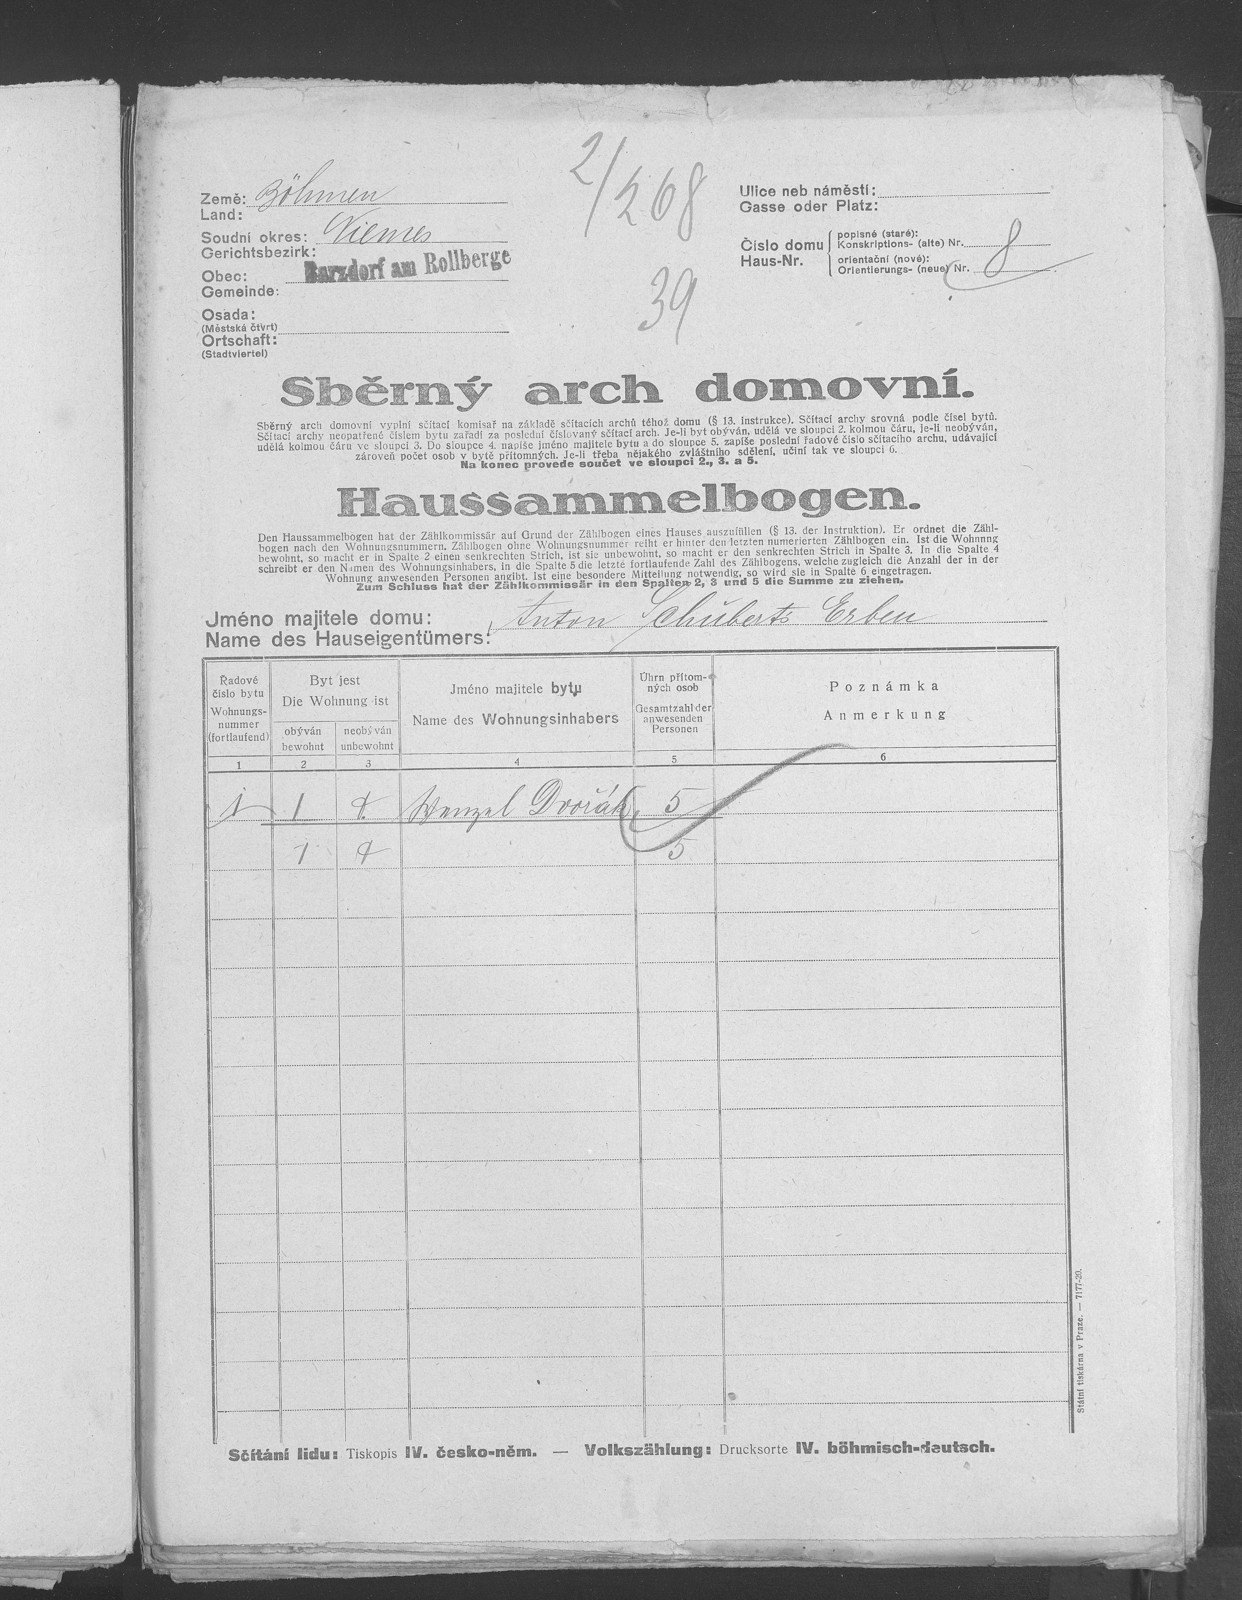 2/268
39
Země: Böhmen
Land:
Soudní okres: Niemes
Gerichtsbezirk:
Obec: Barzdorf am Rollberge
Gemeinde:
Osada:
(Městská čtvrt)
Ortschaft:
(Stadtviertel)
Ulice neb náměstí:
Gasse oder Platz:
Číslo domu
Haus-Nr.
popisné (staré):
Konskriptions- (alte) Nr.
orientační (nové):
Orientierungs- (neue) Nr.
8
Sběrný arch domovní.
Sběrný arch domovní vyplní sčítací komisař na základě sčítacích archů téhož domu (§ 13. instrukce). Sčítací archy srovná podle čísel bytů.
Sčítací archy neopatřené číslem bytu zařadí za poslední číslovaný sčítací arch. Je-li byt obýván, udělá ve sloupci 2. kolmou čáru, je-li neobýván,
udělá kolmou čáru ve sloupci 3. Do sloupce 4. napíše jméno majitele bytu a do sloupce 5. zapíše poslední řadové číslo sčítacího archu, udávající
zároveň počet osob v bytě přítomných. Je-li třeba nějakého zvláštního sdělení, učiní tak ve sloupci 6.
Na konec provede součet ve sloupci 2., 3. a 5.
Haussammelbogen.
Den Haussammelbogen hat der Zählkommissär auf Grund der Zählbogen eines Hauses auszufüllen (§ 13. der Instruktion). Er ordnet die Zähl-
bogen nach den Wohnungsnummern. Zählbogen ohne Wohnungsnummer reiht er hinter den letzten numerierten Zählbogen ein. Ist die Wohnnng
bewohnt, so macht er in Spalte 2 einen senkrechten Strich, ist sie unbewohnt, so macht er den senkrechten Strich in Spalte 3. In die Spalte 4
schreibt er den Namen des Wohnungsinhabers, in die Spalte 5 die letzte fortlaufende Zahl des Zählbogens, welche zugleich die Anzahl der in der
Wohnung anwesenden Personen angibt. Ist eine besondere Mitteilung notwendig, so wird sie in Spalte 6 eingetragen.
Zum Schluss hat der Zählkommissär in den Spalten 2, 3 und 5 die Summe zu ziehen.
Jméno majitele domu: Anton Schuberts Erben
Name des Hauseigentümers:
Řadové
číslo bytu
Wohnungs-
nummer
(fortlaufend)
Byt jest
Die Wohnung ist
obýván
bewohnt
neobýván
unbewohnt
Jméno majitele bytu
Name des Wohnungsinhabers
Úhrn přítom-
ných osob
Gesamtzahl der
anwesenden
Personen
Poznámka
Anmerkung
1 2 3 4 5 6
1 1 Wenzel Dvořák 5
1 5
Sčítání lidu: Tiskopis IV. česko-něm. — Volkszählung: Drucksorte IV. böhmisch-deutsch.
Státní tiskárna v Praze. — 7177-20.